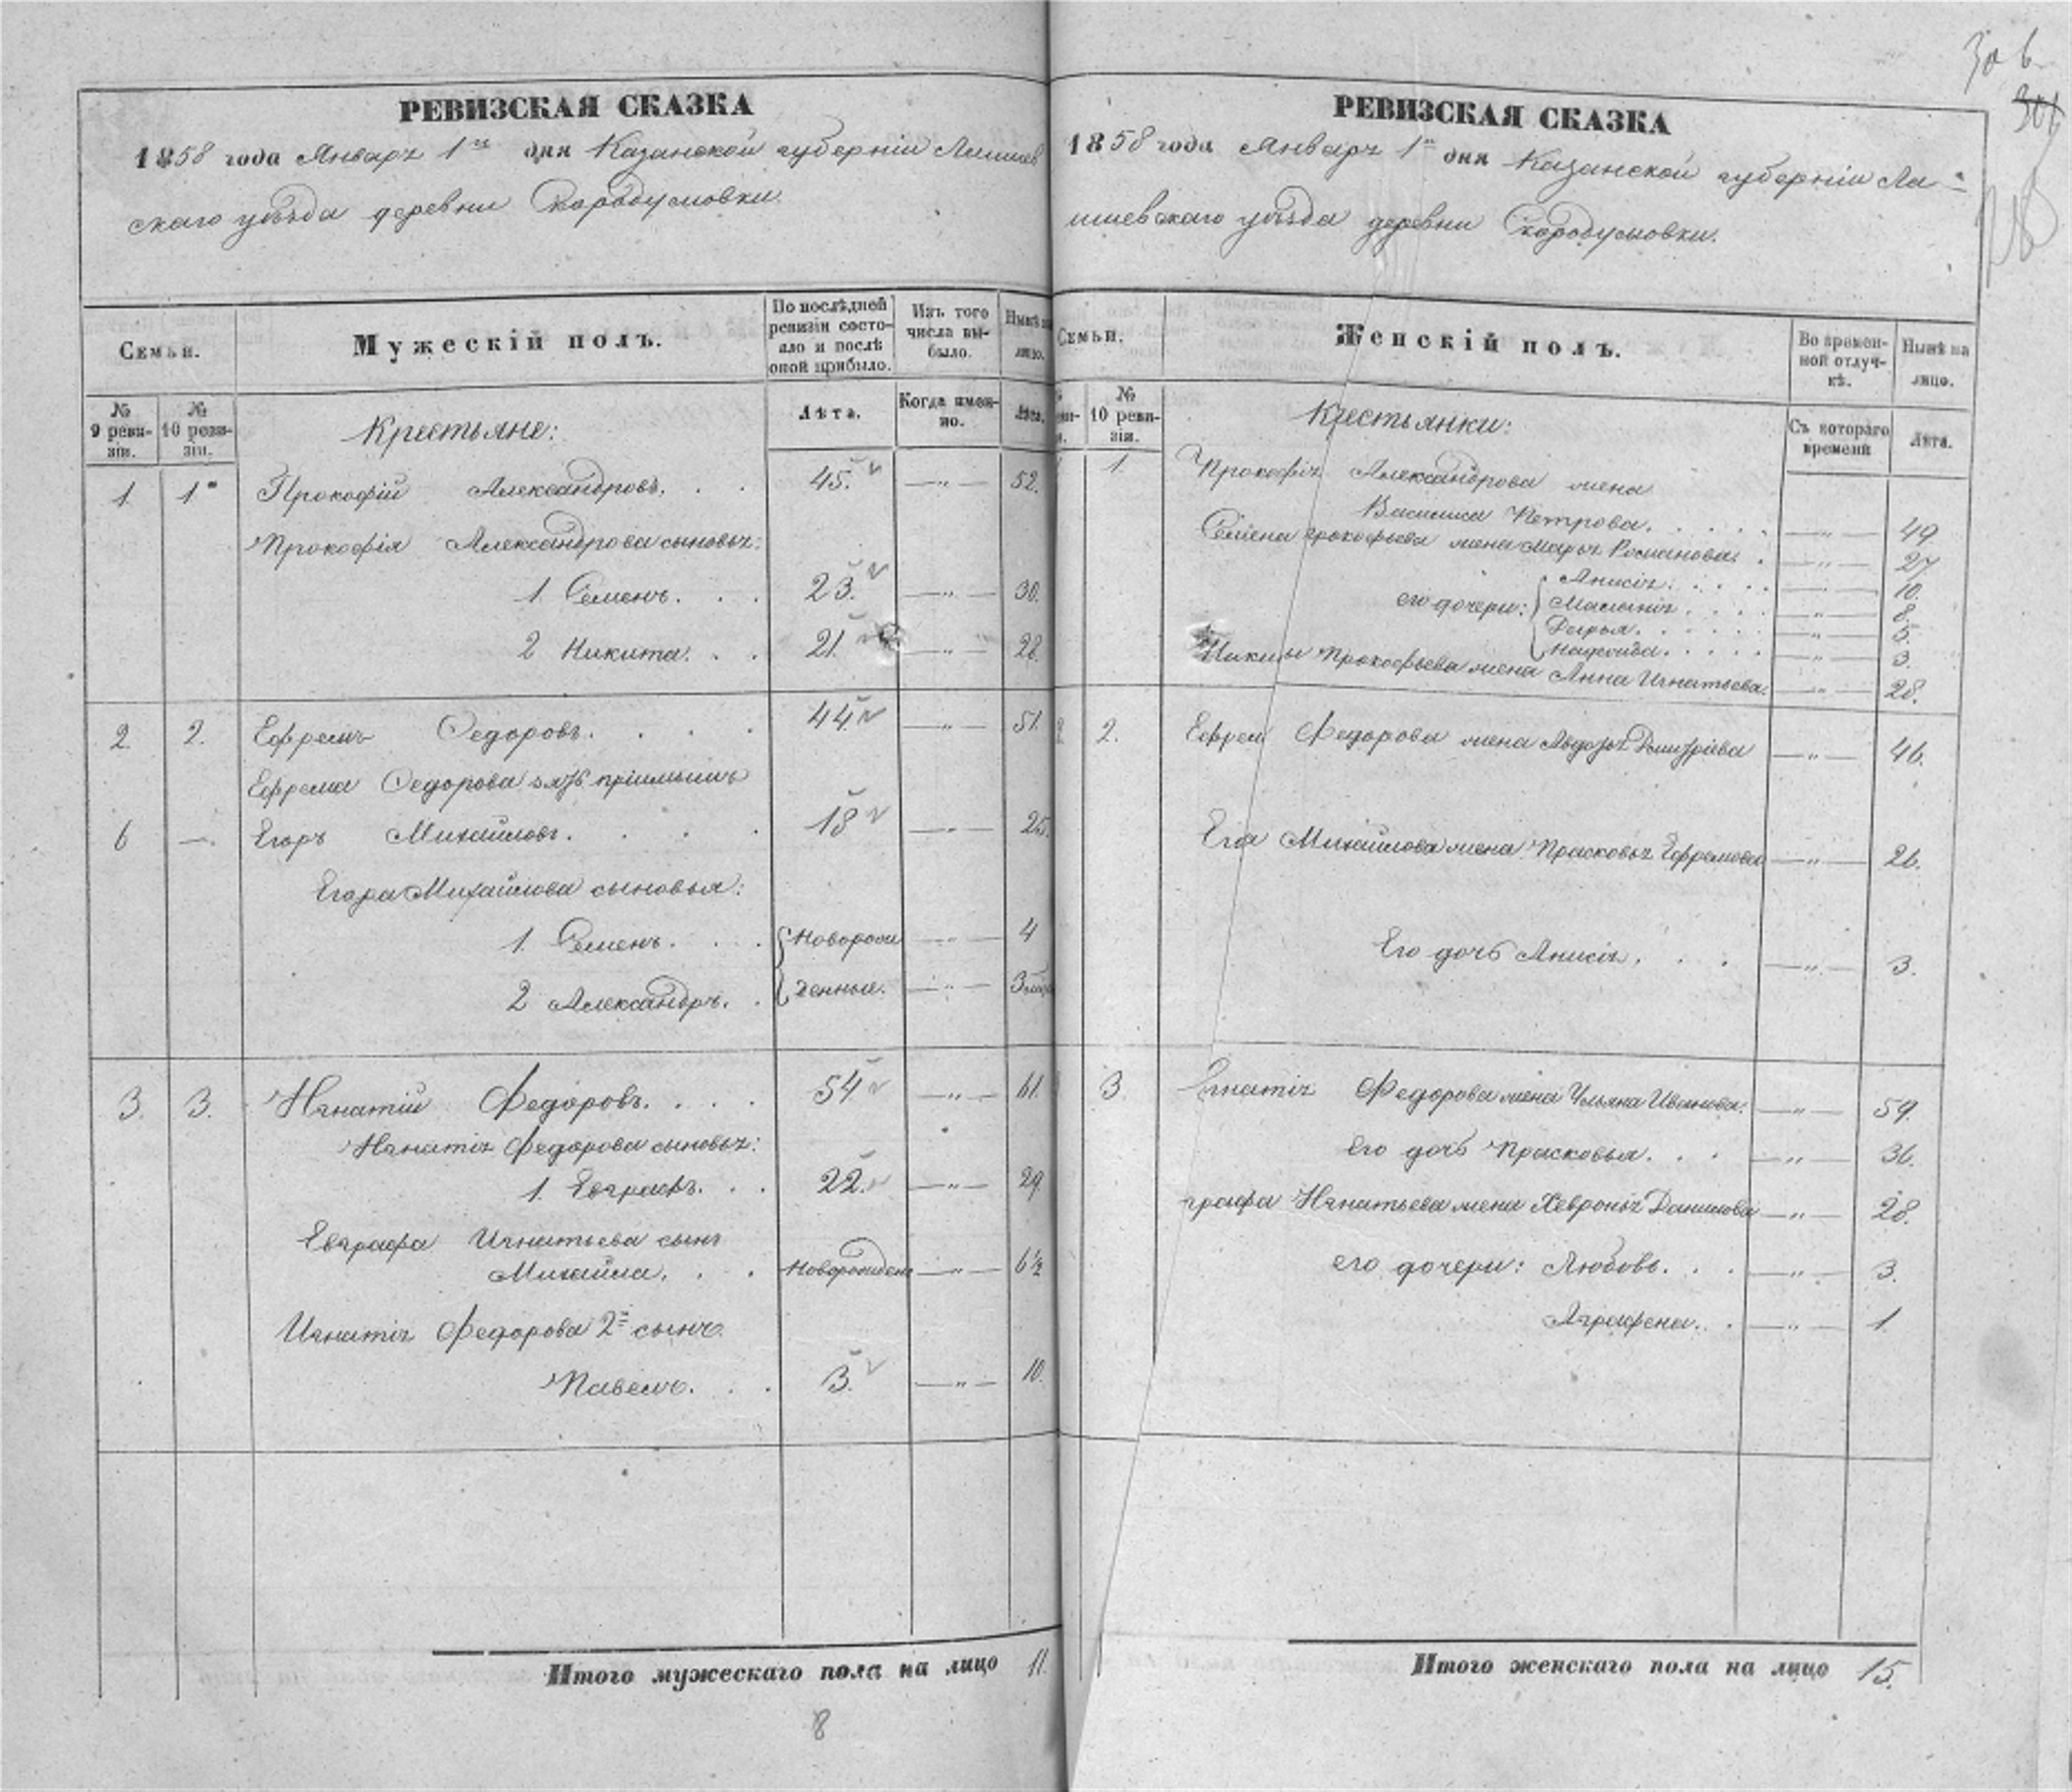 306
306
РЕВИЗСКАЯ СКАЗКА
1858 года Января 1го дня Казанской губерніи Лаишев
скаго уѣзда деревни Скородумовки.
Семьи.
Мужескій полъ.
По послѣдней ревизіи состояло и послѣ оной прибыло.
Изъ того числа выбыло.
Нынѣ на лицо.
№ 9 ревизіи.
№ 10 ревизіи.
Крестьяне:
Лѣта.
Когда именно.
Лѣта.
1. 1. Прокофій Александровъ. 45. —„— 52.
Прокофія Александрова сыновья:
1. Семенъ. 23. —„— 30.
2 Никита. 21. —„— 28.
2. 2. Ефремъ Ѳедоровъ. 44 —„— 51.
Ефрема Ѳедорова зять пріимышъ
6 —. Егоръ Михайловъ. 18 —„— 25.
Егора Михайлова сыновья:
1. Семенъ. Новорож —„— 4
2 Александръ. денные. —„— 3 мѣс
3. 3. Игнатій Федоровъ. 54 —„— 61.
Игнатія Федорова сыновья:
1. Евграфъ. 22. —„— 29.
Евграфа Игнатьева сынъ
Михаила. Новорожден —„— 6½
Игнатія Федорова 2й сынъ
Павелъ. 3. —„— 10.
Итого мужескаго пола на лицо 11.
8
РЕВИЗСКАЯ СКАЗКА
1858 года Января 1го дня Казанской губерніи Ла-
ишевскаго уѣзда деревни Скородумовки.
Семьи.
Женскій полъ.
Во временной отлучкѣ.
Нынѣ на лицо.
№ 10 ревизіи.
Крестьянки:
Съ котораго времени
Лѣта.
1. Прокофія Александрова жена
Василиса Петрова. —„— 49.
Семена Прокофьева жена Марья Романова. —„— 27.
его дочери: Анисія. —„— 10.
Маланія. —„— 8.
Дарья. —„— 5.
Надежда. —„— 3.
Никиты Прокофьева жена Анна Игнатьева. —„— 28.
2. Ефрем Федорова жена Авдотья Дмитріева —„— 46.
Его Михайлова жена Прасковья Ефремова —„— 26.
Его дочь Анисія. —„— 3.
3. Игнатія Федорова жена Ульяна Иванова. —„— 59.
Его дочь Прасковья. —„— 36.
графа Игнатьева жена Хевронья Данилова —„— 28.
его дочери: Любовь. —„— 3.
Аграфена. —„— 1.
Итого женскаго пола на лицо 15.